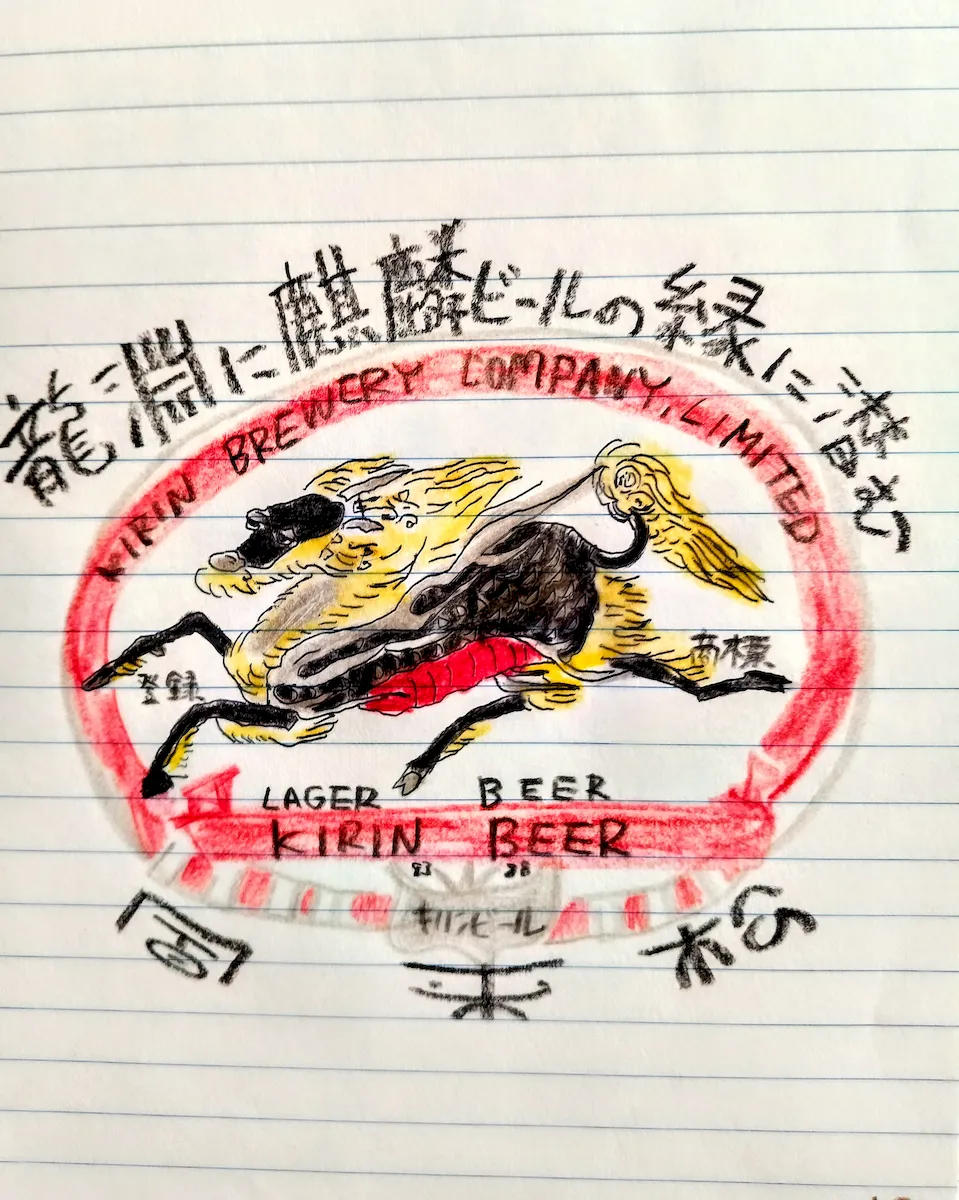 龍淵に麒麟ビールの縁に潜む
KIRIN BREWERY COMPANY, LIMITED
登録 商標
LAGER BEER
KIRIN BEER
キリンビール